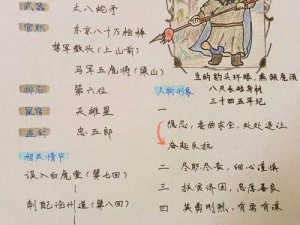 武器
丈八蛇矛
官职
东京八十万枪棒
禁军教头（上山前）
马军五虎将（梁山）
排名
第六位
星宿
天雄星
追封
忠武郎
相关情节
误入白虎堂（第七回）
刺配沧州道（第八回）
生的豹头环眼，燕颔虎须
八尺长短身材
三十四五年纪
人物形象
一 隐忍，委曲求全，处处退让
奋起反抗
二 尽职尽责，细心谨慎
三 扶危济困，忠厚善良
四 英勇刚烈，有勇有谋